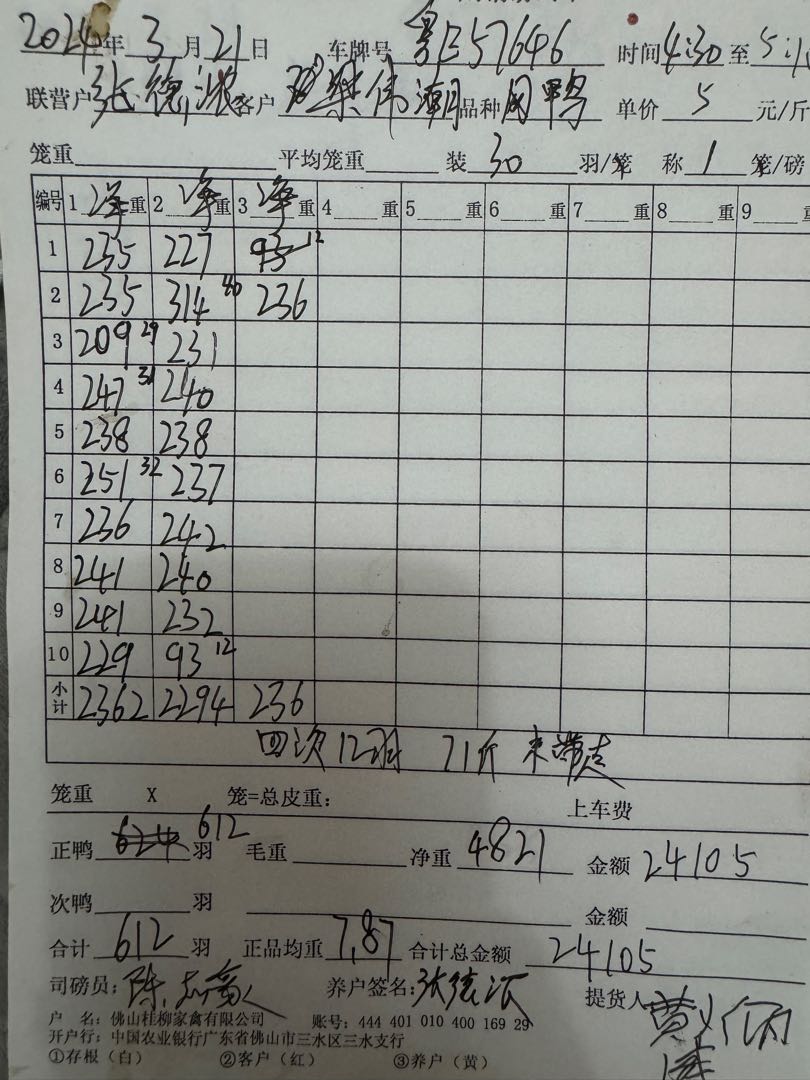 2024年 3 月 21 日 车牌号 粤E57646 时间 4:30 至 5:1
联营户 张德 客户 梁伟潮 品种 鸭 单价 5 元/斤
笼重 平均笼重 装 30 羽/笼 称 1 笼/磅
编号 1 净 重 2 净 重 3 净 重 4 重 5 重 6 重 7 重 8 重 9
1 235 227 93 12
2 235 314 40 236
3 209 29 231
4 247 31 240
5 238 238
6 251 32 237
7 236 242
8 241 240
9 241 232
10 229 93 12
小计 2362 2294 236
四次 12羽 71斤 未带走
笼重 X 笼=总皮重: 上车费
正鸭 624 612 羽 毛重 净重 4821 金额 24105
次鸭 羽 金额
合计 612 羽 正品均重 7.87 合计总金额 24105
司磅员: 陈 养户签名: 张德 提货人 黄
户 名: 佛山桂柳家禽有限公司 账号: 444 401 010 400 169 29
开户行: 中国农业银行广东省佛山市三水区三水支行
①存根(白) ②客户(红) ③养户(黄)